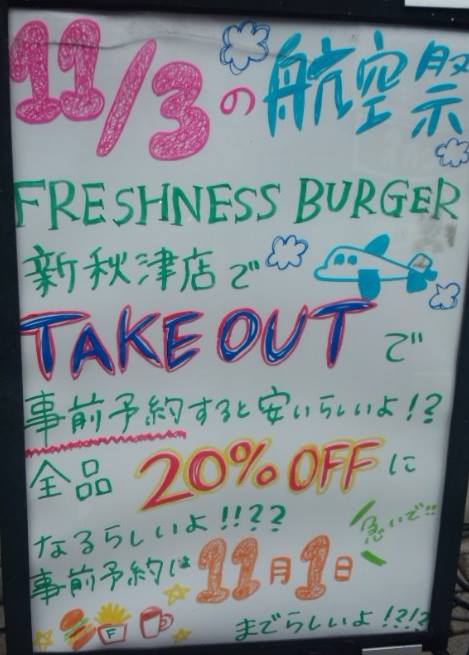 11/3の航空祭
FRESHNESS BURGER
新秋津店で
TAKE OUTで
事前予約すると安いらしいよ!?
全品20%OFFに
なるらしいよ!!??
急いで!!
事前予約は11月1日
F
までらしいよ!?!?